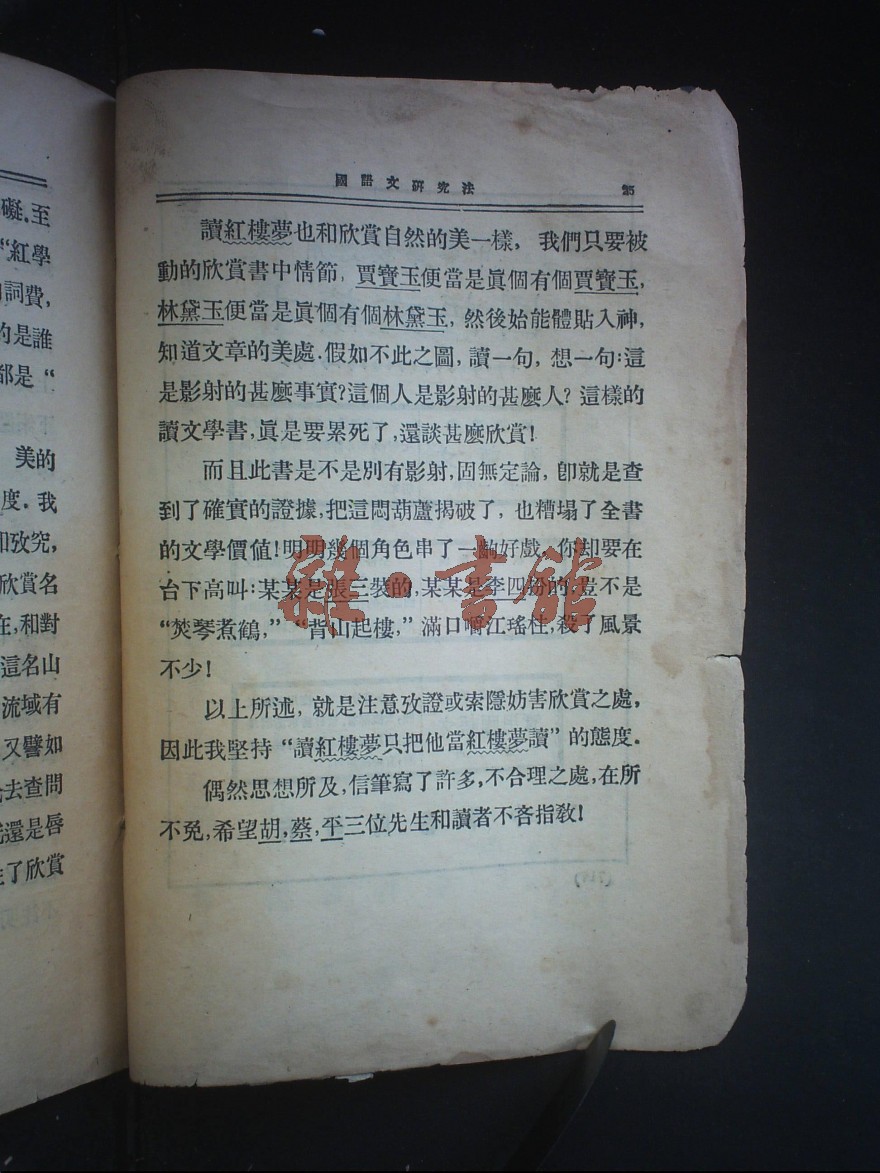 礙．至
“紅學
詞費，
的是誰
都是“
美的
度．我
和攷究，
欣賞名
在，和對
這名山
流域有
又譬如
去查問
還是唇
了欣賞
國語文研究法 25
讀紅樓夢也和欣賞自然的美一樣，我們只要被
動的欣賞書中情節．賈寶玉便當是眞個有個賈寶玉，
林黛玉便當是眞個有個林黛玉，然後始能體貼入神，
知道文章的美處．假如不此之圖，讀一句，想一句：這
是影射的甚麼事實？這個人是影射的甚麼人？這樣的
讀文學書，眞是要累死了，還談甚麼欣賞！
而且此書是不是別有影射，固無定論，卽就是查
到了確實的證據，把這悶葫蘆揭破了，也糟塌了全書
的文學價值！明明幾個角色串了一齣好戲，你却要在
台下高叫：某某是張三裝的，某某是李四扮的，豈不是
“焚琴煮鶴，”“背山起樓，”滿口嚼江瑤柱，殺了風景
不少！
以上所述，就是注意攷證或索隱妨害欣賞之處，
因此我堅持“讀紅樓夢只把他當紅樓夢讀”的態度．
偶然思想所及，信筆寫了許多，不合理之處，在所
不免，希望胡，蔡，平三位先生和讀者不吝指敎！
雜·書館